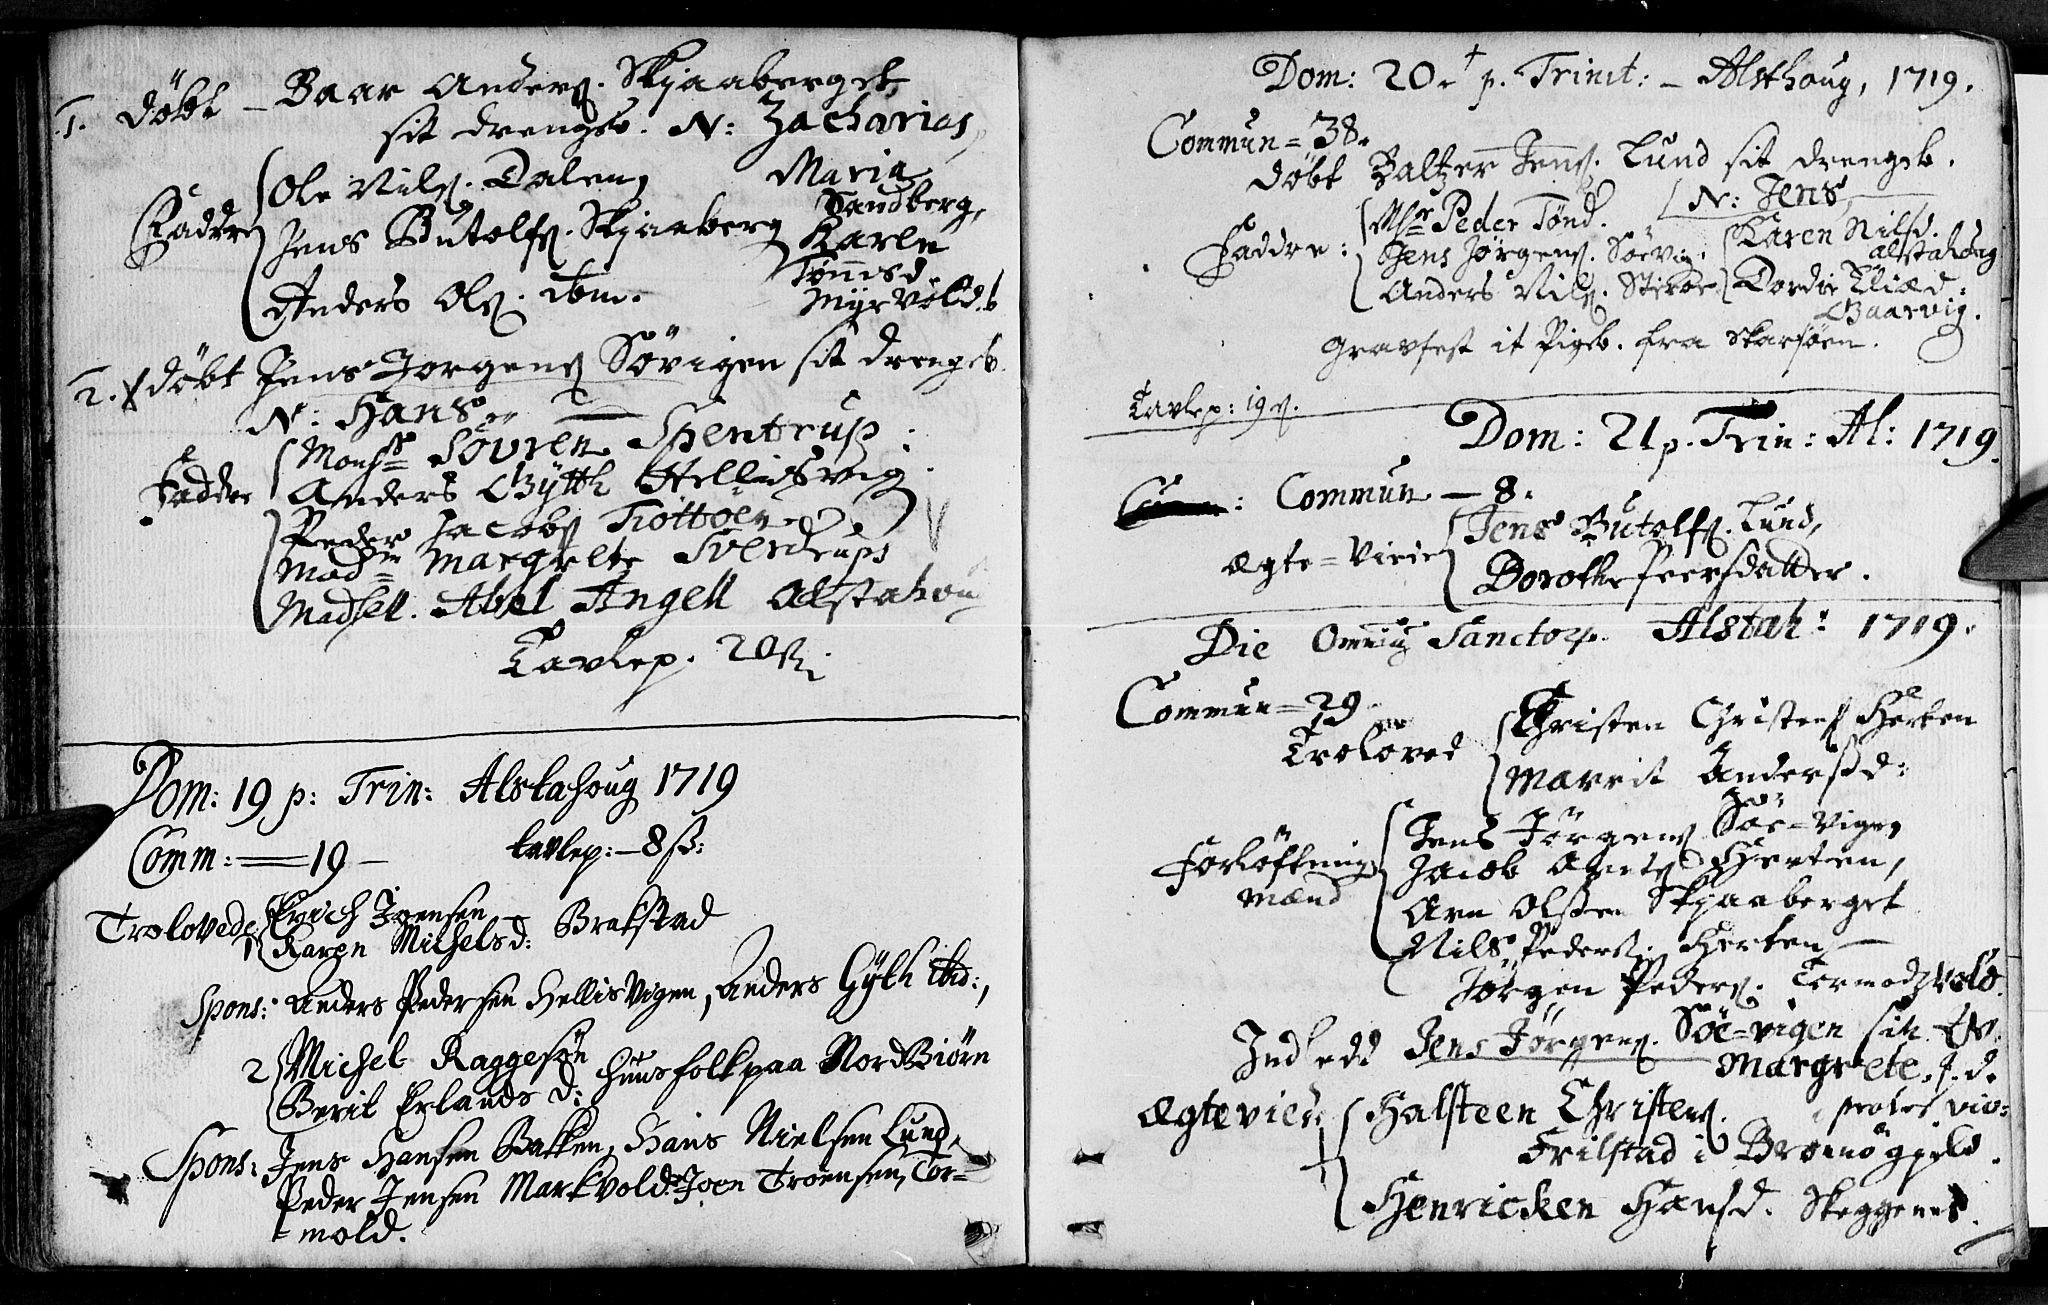 1. döbt – Baar Anders. Skjaaberget
sit drengeb. N: Zacharias,
Faddre Ole Nils. Dalen, Maria
Sandberg,
Jens Butolfs. Skjaaberg Karen
Tönnisd.
Anders Ols. ibm. Myrvold.
2. döbt Jens Jorgens Sövigen sit drengeb.
N: Hans
Faddre Monsr Sövren Spentrup:
Anders Gytth Hellisvig.
Peder Jacobs Tiöttöen
Madm Margrete Sverdrups
Madsell. Abel Angell Alstahoug
Tavlep. 20 ß.
Dom: 19 p: Trin: Alstahoug 1719
Comm: = 19 – tavlep: – 8 ß:
Trolovede 1 Erich Joensen
Karen Michelsd: Brakstad
Spons: Anders Pedersen Hellisvigen, Anders Gyth ibid:,
2 Michel Raggesøn
Berit Erlands D: Huusfolk paa Nord Biörn
Spons: Jens Hansen Bakken, Hans Nielsen Lund,
Peder Jensen Markvold. Joen Troensen, Tor=
mold.
Dom: 20. p. Trinit: – Alsthoug, 1719.
Commun = 38.
döbt Baltzer Jens. Lund sit drengeb.
N: Jens,
Faddre: Msr Peder Tönd. Karen Nilsd.
Jens Jörgens. Söevig. alstahoug
Anders Nils. Dordie Eliæd:
Baarvig.
Gravfest it Pigeb. fra Skarsöen.
Tavlep: 19 ß.
Dom: 21 p. Trin: Al: 1719.
Commun – 8.
Ægte=Viede Jens Butolfs. Lund,
Dorothe Peersdatter.
Die Omniū Sanctor. Alstah: 1719.
Commun = 29
Troloved Christen Christens Herten
Marrit Andersd:
Forlöftnings Jens Jörgens Söe=Vigen
Jacob Herten,
mænd Arn Olsen Skjaaberget
Nils Peders. Herten –
Jörgen Peders. Tormodsvold.
Indledd Jens Jörgens. Söe=vigen sin
Margrete. J. d.
Ægtevied Halsteen Christens.
Trilstad i Brönögjeld.
Henricken Hansd. Skeggenes.